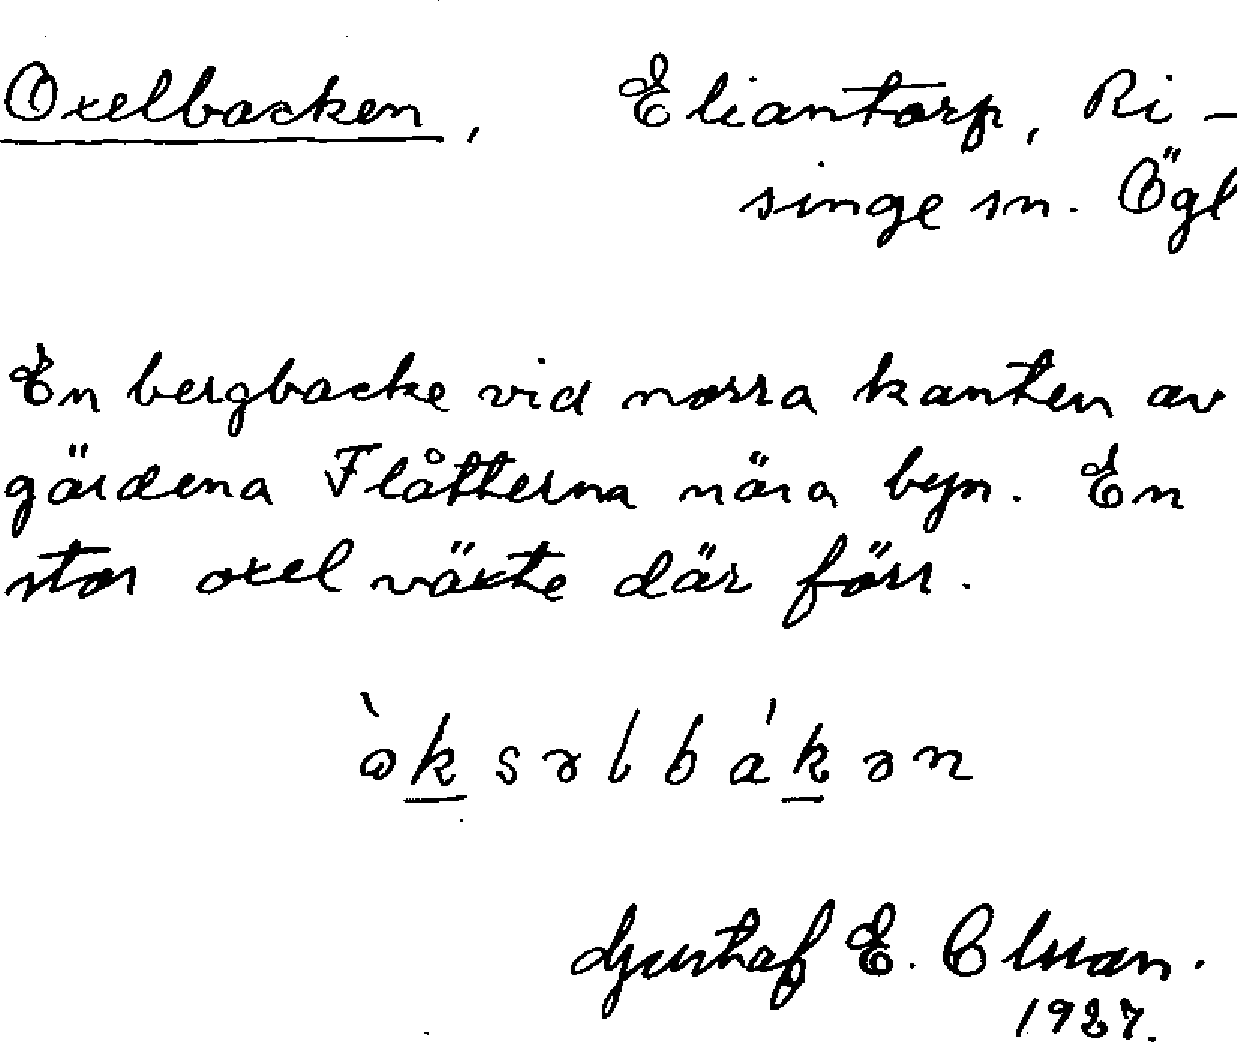 Oxelbacken, Eliantorp, Ri-
singe sn. Ögl
En bergbacke vid norra kanten av
gärdena Flåtterna nära byn. En
stor oxel växte där förr.
òksəlbákən
Gustaf E. Olsson.
1927.